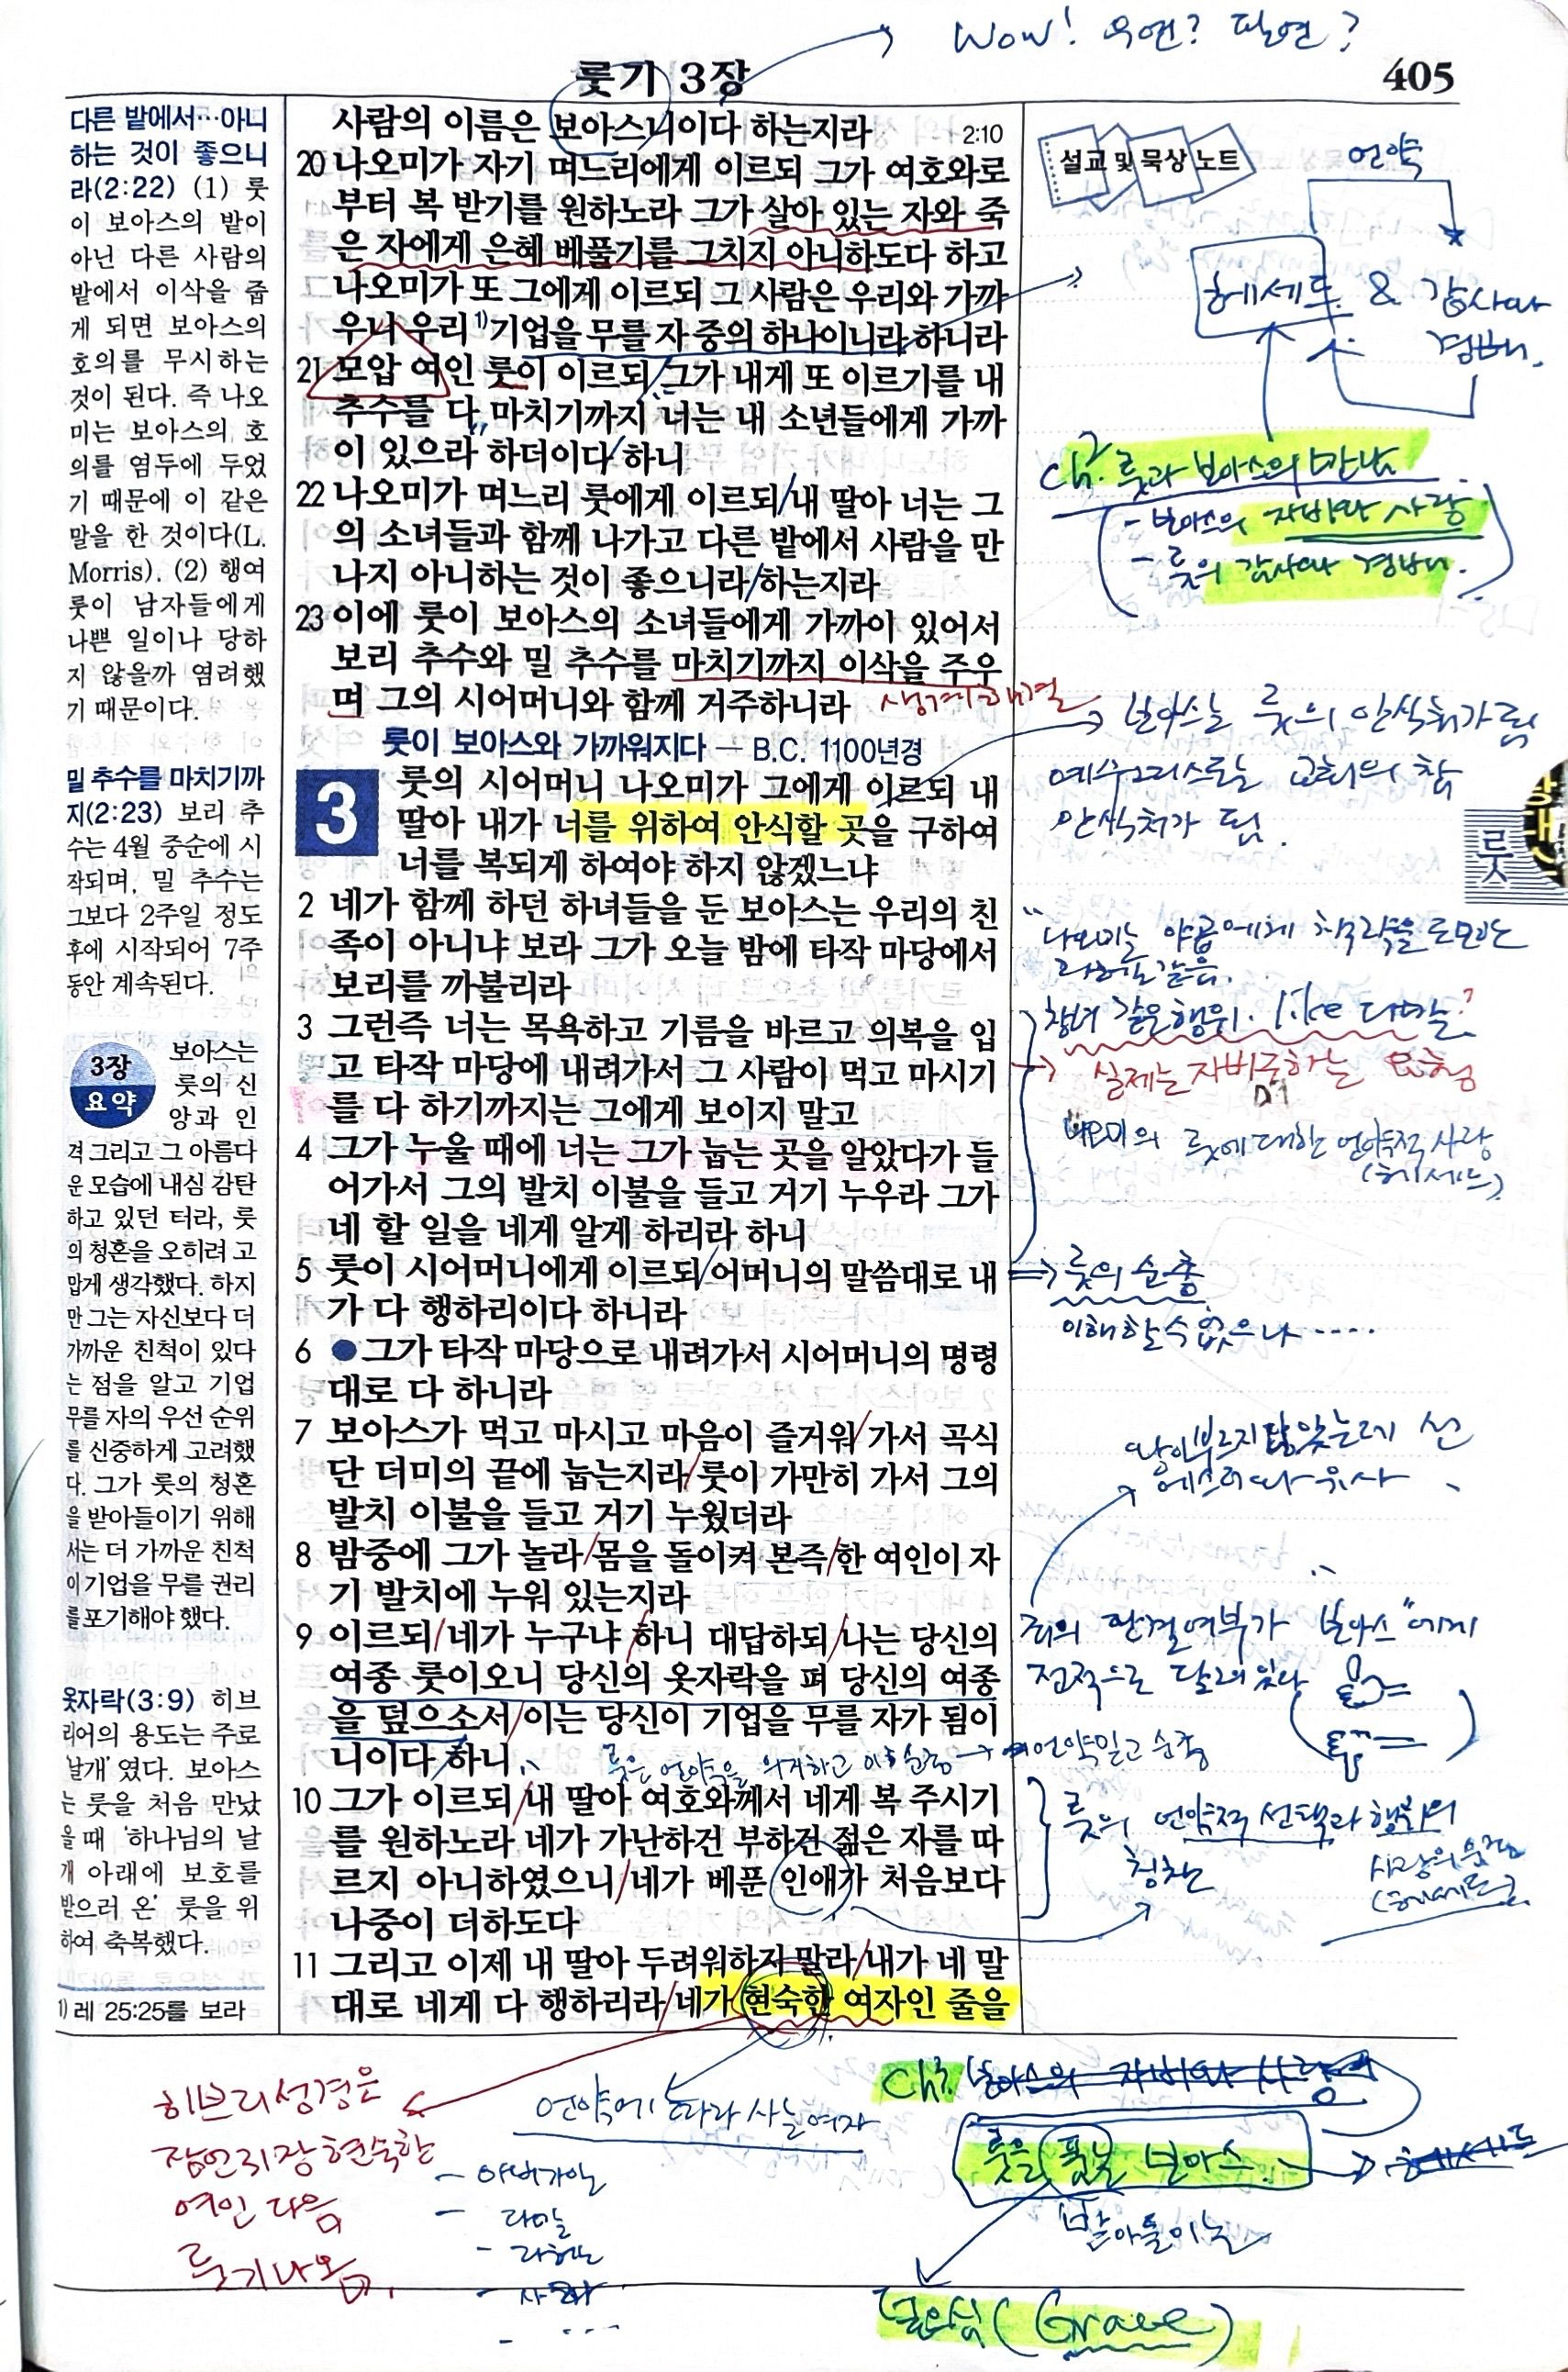 Wow! 우연? 필연?
룻기 3장
405
다른 밭에서…아니
하는 것이 좋으니
라(2:22) (1) 룻
이 보아스의 밭이
아닌 다른 사람의
밭에서 이삭을 줍
게 되면 보아스의
호의를 무시하는
것이 된다. 즉 나오
미는 보아스의 호
의를 염두에 두었
기 때문에 이 같은
말을 한 것이다(L.
Morris). (2) 행여
룻이 남자들에게
나쁜 일이나 당하
지 않을까 염려했
기 때문이다.
밀 추수를 마치기까
지(2:23) 보리 추
수는 4월 중순에 시
작되며, 밀 추수는
그보다 2주일 정도
후에 시작되어 7주
동안 계속된다.
3장
요약
보아스는
룻의 신
앙과 인
격 그리고 그 아름다
운 모습에 내심 감탄
하고 있던 터라, 룻
의 청혼을 오히려 고
맙게 생각했다. 하지
만 그는 자신보다 더
가까운 친척이 있다
는 점을 알고 기업
무를 자의 우선 순위
를 신중하게 고려했
다. 그가 룻의 청혼
을 받아들이기 위해
서는 더 가까운 친척
이 기업을 무를 권리
를 포기해야 했다.
옷자락(3:9) 히브
리어의 용도는 주로
'날개'였다. 보아스
는 룻을 처음 만났
을 때 '하나님의 날
개 아래에 보호를
받으러 온' 룻을 위
하여 축복했다.
1) 레 25:25를 보라
사람의 이름은 보아스니이다 하는지라 2:10
20 나오미가 자기 며느리에게 이르되 그가 여호와로
부터 복 받기를 원하노라 그가 살아 있는 자와 죽
은 자에게 은혜 베풀기를 그치지 아니하도다 하고
나오미가 또 그에게 이르되 그 사람은 우리와 가까
우니 우리 1)기업을 무를 자 중의 하나이니라 하니라
21 모압 여인 룻이 이르되 그가 내게 또 이르기를 내
추수를 다 마치기까지 너는 내 소년들에게 가까
이 있으라 하더이다 하니
22 나오미가 며느리 룻에게 이르되 내 딸아 너는 그
의 소녀들과 함께 나가고 다른 밭에서 사람을 만
나지 아니하는 것이 좋으니라 하는지라
23 이에 룻이 보아스의 소녀들에게 가까이 있어서
보리 추수와 밀 추수를 마치기까지 이삭을 주우
며 그의 시어머니와 함께 거주하니라
생계해결
룻이 보아스와 가까워지다 — B.C. 1100년경
3 룻의 시어머니 나오미가 그에게 이르되 내
딸아 내가 너를 위하여 안식할 곳을 구하여
너를 복되게 하여야 하지 않겠느냐
2 네가 함께 하던 하녀들을 둔 보아스는 우리의 친
족이 아니냐 보라 그가 오늘 밤에 타작 마당에서
보리를 까불리라
3 그런즉 너는 목욕하고 기름을 바르고 의복을 입
고 타작 마당에 내려가서 그 사람이 먹고 마시기
를 다 하기까지는 그에게 보이지 말고
4 그가 누울 때에 너는 그가 눕는 곳을 알았다가 들
어가서 그의 발치 이불을 들고 거기 누우라 그가
네 할 일을 네게 알게 하리라 하니
5 룻이 시어머니에게 이르되 어머니의 말씀대로 내
가 다 행하리이다 하니라
6 ●그가 타작 마당으로 내려가서 시어머니의 명령
대로 다 하니라
7 보아스가 먹고 마시고 마음이 즐거워 가서 곡식
단 더미의 끝에 눕는지라 룻이 가만히 가서 그의
발치 이불을 들고 거기 누웠더라
8 밤중에 그가 놀라 몸을 돌이켜 본즉 한 여인이 자
기 발치에 누워 있는지라
9 이르되 네가 누구냐 하니 대답하되 나는 당신의
여종 룻이오니 당신의 옷자락을 펴 당신의 여종
을 덮으소서 이는 당신이 기업을 무를 자가 됨이
니이다 하니
룻은 언약을 의지하고 순종 → 언약믿고 순종
10 그가 이르되 내 딸아 여호와께서 네게 복 주시기
를 원하노라 네가 가난하건 부하건 젊은 자를 따
르지 아니하였으니 네가 베푼 인애가 처음보다
나중이 더하도다
11 그리고 이제 내 딸아 두려워하지 말라 내가 네 말
대로 네게 다 행하리라 네가 현숙한 여자인 줄을
설교 및 묵상 노트
언약
헤세드 & 감사와
경배.
ch2. 룻과 보아스의 만남
- 보아스의 자비와 사랑
- 룻의 감사와 경배.
보아스는 룻의 안식처가 됨
예수그리스도는 교회의 참
안식처가 됨.
룻
"나오미는 야곱에게 책략을 도모하는
라헬 같음.
창녀 같은 행위. like 다말?
실제는 자비구하는 요청
나오미의 룻에 대한 언약적 사랑
(헤세드)
⇒ 룻의 순종
이해할 수 없으나 ....
왕이 부르지 않았는데 선
에스더와 유사
죄의 해결여부가 "보아스"에게
전적으로 달려 있다
룻의 언약적 선택과 행위의
칭찬
사랑의 웃점
(헤세드)
히브리성경은
잠언31장 현숙한
여인 다음
룻기나옴.
언약에 따라 사는 여자
- 아비가일
- 다말
- 라헬
- 사라
- ...
ch3. 보아스의 자비와 사랑
룻을 품는 보아스. → 헤세드
받아들이는
받아들임 (Grace)